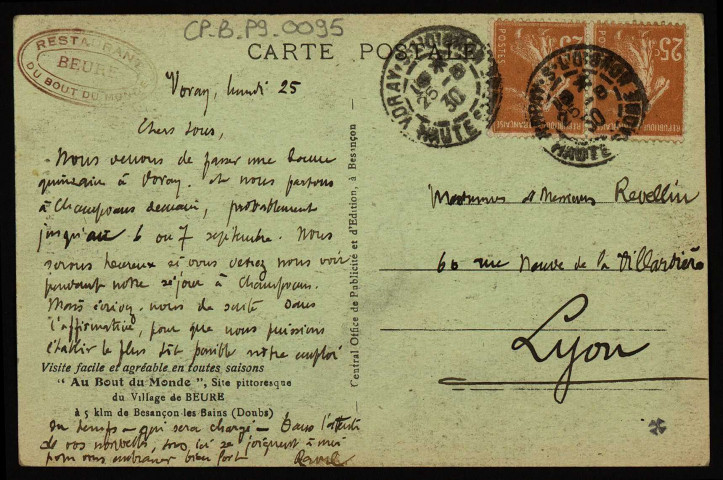 CP-B-P9-0095
RESTAURANT
BEURE
DU BOUT DU MONDE
CARTE POSTALE
25c
POSTES
REPUBLIQUE FRANÇAISE
25c
REPUBLIQUE FRANÇAISE
VORAY-S-L'OGNON
HAUTE
25
30
Voray, lundi 25
Chers tous,
Nous venons de passer une bonne
quinzaine à Voray et nous partons
à Champvans demain, probablement
jusqu'au 6 ou 7 septembre. Nous
serons heureux si vous venez nous voir
pendant notre séjour à Champvans.
Mais écrivez-nous de suite dans
l'affirmative, pour que nous puissions
établir le plus tôt possible notre emploi
Visite facile et agréable en toutes saisons
" Au Bout du Monde ", Site pittoresque
du Village de BEURE
à 5 klm de Besançon-les-Bains (Doubs)
du temps - qui sera chargé - Dans l'attente
de vos nouvelles, tous ici se joignent à moi
pour vous embrasser bien fort
Central Office de Publicité et d'Edition, à Besançon
Mesdames et Messieurs Revellin
60 rue Neuve de la Villardière
Lyon